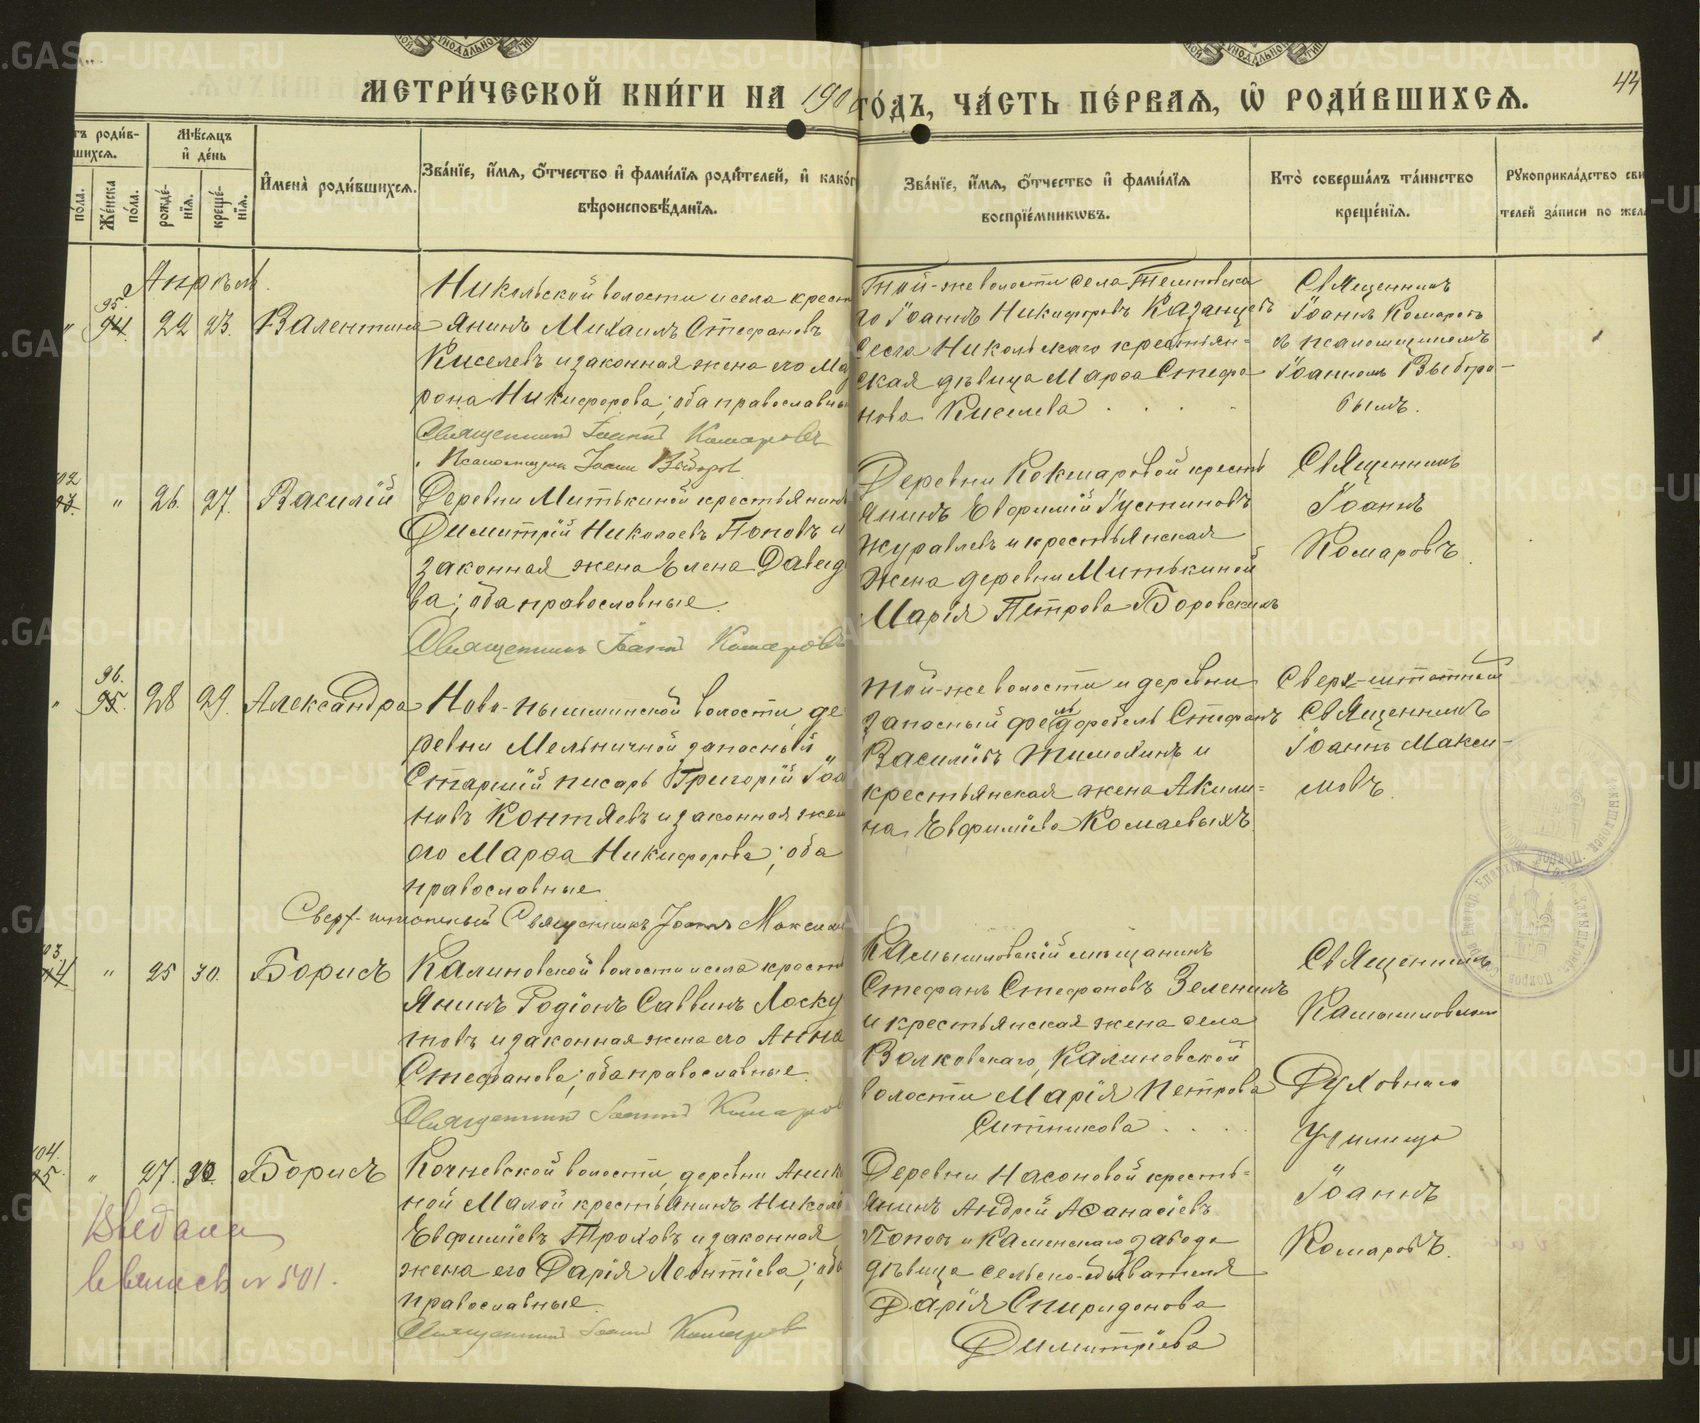 МЕТРИ́ЧЕСКОЙ КНИ́ГИ НА 190
ГО́ДЪ, ЧА́СТЬ ПЕ́РВАѦ, Ѡ҆ РОДИ́ВШИХСѦ.
44
тъ роди́в-
шихсѧ.
Мѣ́сяцъ
и҆ де́нь
по́ла.
Же́нска
по́ла.
рожде́-
нїѧ.
креще́-
нїѧ.
И҆мена̀ роди́вшихсѧ.
Зва́нїе, и҆́мѧ, ѻ҆́тчество и҆ фами́лїѧ роди́телей, и҆ како́г
вѣроисповѣ́данїѧ.
Зва́нїе, и҆́мѧ, ѻ҆́тчество и҆ фами́лїѧ
воспрїе́мникѡвъ.
Кто̀ соверша́лъ та́инство
креще́нїѧ.
Рꙋкоприкла́дство сви
телей за́писи по жела
Апрѣль.
95.
94.
"
22
23.
Валентина
Никольской волости и села крест
янинъ Михаилъ Стефановъ
Киселевъ и законная жена его Ма
рона Никифорова; оба православны
Священникъ Іоаннъ Комаровъ
Псаломщикъ Іоаннъ Выборов
Той-же волости села
го Іоаннъ Никифоровъ Казанцевъ
Села Никольскаго крестьян-
ская дѣвица Марѳа Стефа
нова Киселева
Священникъ
Іоаннъ Комаровъ
съ псаломщикомъ
Іоанномъ Выборо-
вымъ.
02
"
26.
27.
Василій
Деревни Митькиной крестьянинъ
Димитрій Николаевъ Поповъ и
законная жена Елена Давид
ва; оба православные.
Священникъ Іоаннъ Комаровъ
Деревни Кокшаровой кресть
янинъ Евфимій Іустиновъ
Журавлевъ и крестьянская
жена деревни Митькиной
Марія Петрова Боровскихъ
Священникъ
Іоаннъ
Комаровъ.
96.
95.
28
29.
Александра
Ново-Пышминской волости, де
ревни Мельничной запасный
Старшій писарь Григорій Іоа
новъ Контяевъ и законная жен
его Марѳа Никифорова; оба
православные
Сверх-штатный Священникъ Іоаннъ Максим
той-же волости и деревни
запасный фельдфебель Стефанъ
Василіевъ Тимохинъ и
крестьянская жена Акили=
на Евфиміева Комаевыхъ
Сверх-штатный
Священникъ
Іоаннъ Макси-
мовъ.
03.
"
25
30.
Борисъ
Калиновской волости и села крестья
янинъ Родіонъ Саввинъ Лоску
товъ и законная жена его Анна
Стефанова; оба православные.
Священникъ Іоаннъ Комаров
Камышловскій мѣщанинъ
Стефанъ Стефановъ Зеленинъ
и крестьянская жена села
Волковскаго, Калиновской
волости Марія Петрова
Ситникова
Священникъ
Камышловскаго
Духовнаго
Училища
Іоаннъ
Комаровъ.
04.
"
27.
30.
Борисъ
Кочневской волости, деревни Аник
ной Малой крестьянинъ Никола
Евфиміевъ Троховъ и законная
жена его Дарія Леонтіева; оба
православные.
Священникъ Іоаннъ Комаров
Деревни Насоновой кресть=
янинъ Андрей Аѳанасіевъ
Поповъ и Каменскаго завода
дѣвица сельско-обывателя
Дарія Спиридонова
Димитріева
№ 501.
METRIKI.GASO-URAL.RU